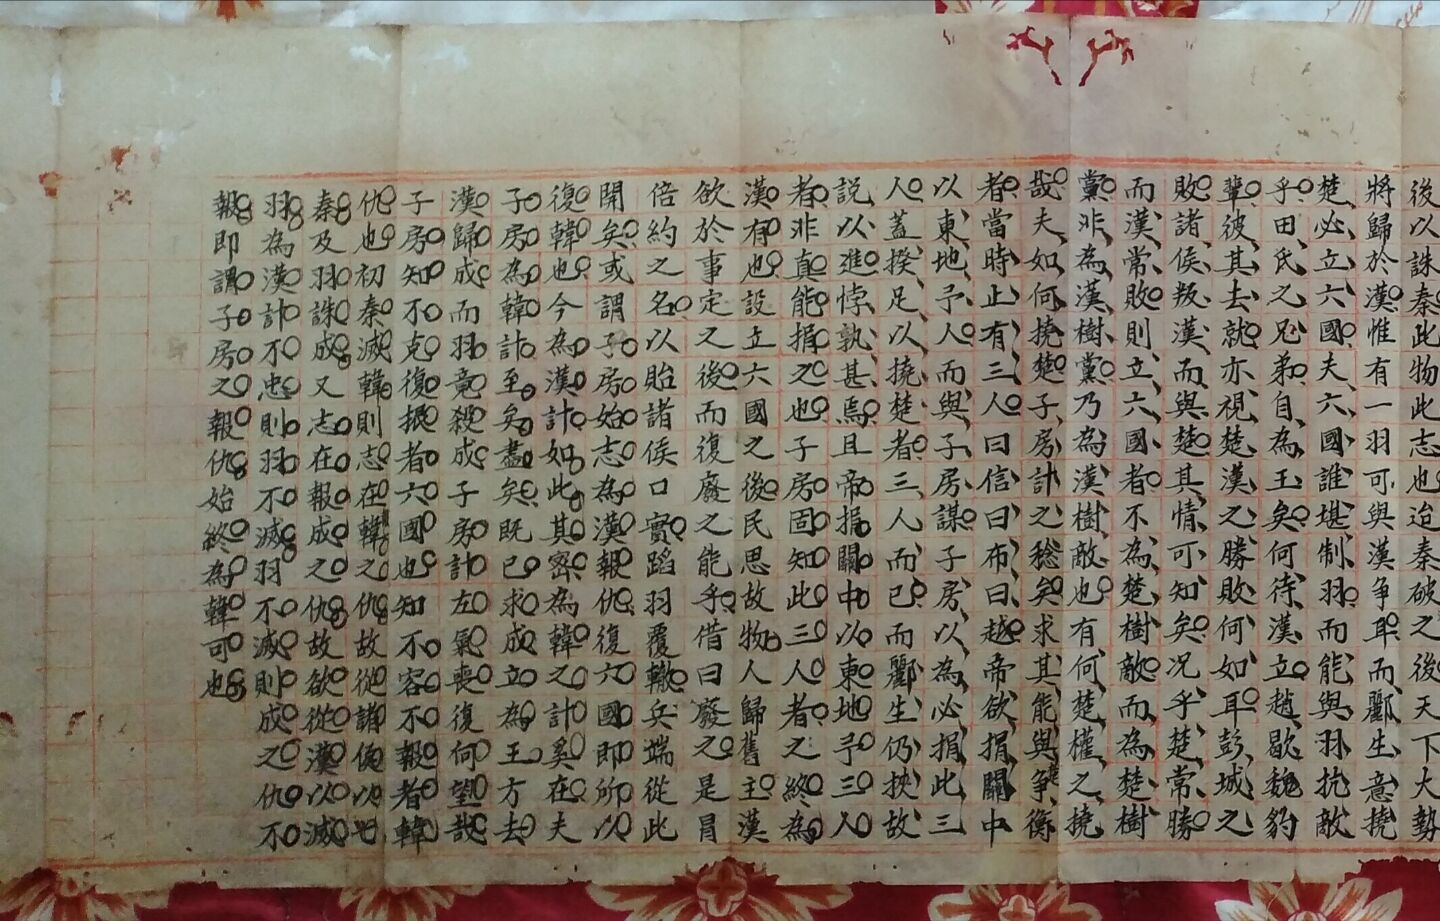 後以誅秦此物此志也迨秦破之後天下大勢
將歸於漢惟有一羽可與漢爭耳而酈生意撓
楚必立六國夫六國誰堪制羽而能與羽抗敵
乎田氏之兄弟自為王矣何待漢立趙歇魏豹
輩彼其去就亦視楚漢之勝敗何如耳彭城之
敗諸侯叛漢而與楚其情可知矣况乎楚常勝
而漢常敗則立六國者不為楚樹敵而為楚樹
黨非為漢樹黨乃為漢樹敵也有何楚權之撓
哉夫如何撓楚子房計之稔矣求其能與爭衡
者當時止有三人曰信曰布曰越帝欲捐關中
以東地予人而與子房謀子房以為必捐此三
人蓋揆足以撓楚者三人而已而酈生仍抰故
說以進悖孰甚焉且帝捐關中以東地予三人
者非真能捐之也子房固知此三人者之終為
漢有也設立六國之後民思故物人歸舊主漢
欲於事定之後而復廢之能乎借曰廢之是冒
倍約之名以貽諸侯口實蹈羽覆轍兵端從此
開矣或謂子房始志為漢報仇復六國即所以
復韓也今為漢計如此其密為韓之計奚在夫
子房為韓計至矣盡矣既已求成立為王方去
漢歸成而羽竟殺成子房計左氣喪復何望哉
子房知不克復振者六國也知不容不報者韓
仇也初秦滅韓則志在韓之仇故從諸侯以
秦及羽誅成又志在報成之仇故欲從漢以滅
羽為漢計不忠則羽不滅羽不滅則成之仇不
報即謂子房之報仇始終為韓可也